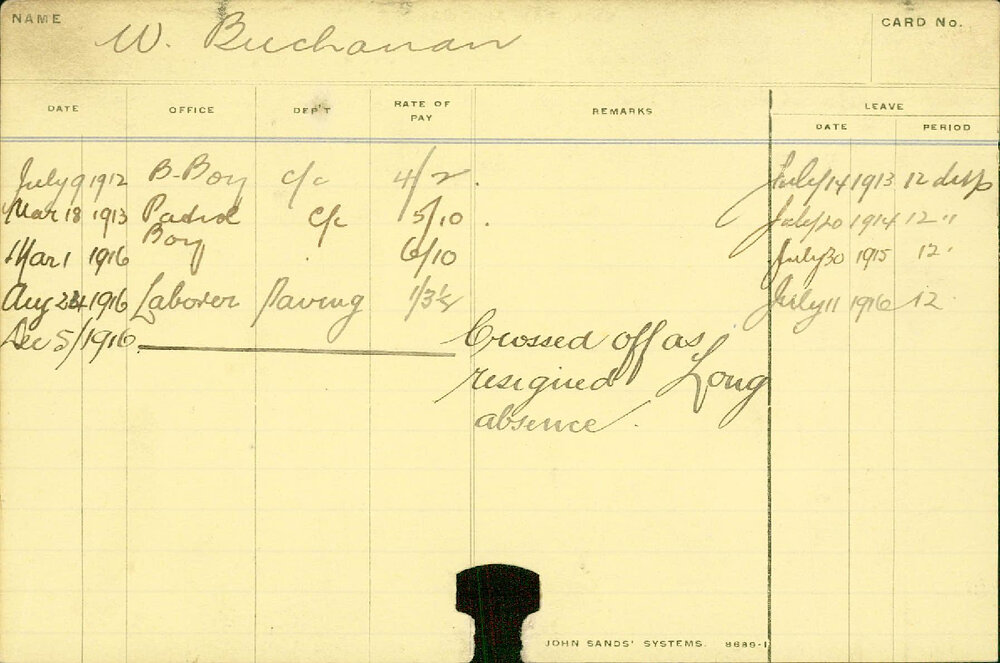 NAME W. Buchanan CARD No.
DATE OFFICE DEP'T RATE OF PAY REMARKS LEAVE
DATE PERIOD
July 9 1912 B-Boy c/c 4/2 July 14 1913 12 days
Mar 18 1913 c/c 5/10 July 20 1914 12 "
Boy
Mar 1 1916 6/10 July 30 1915 12 "
Aug 24 1916 Laborer Paving July 11 1916 12
Dec 5/1916 Crossed off as
resigned Long
absence.
JOHN SANDS' SYSTEMS. 8689-1